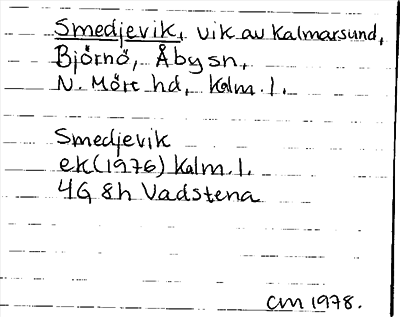 Smedjevik, vik av Kalmarsund,
Björnö, Åby sn,
N. Möre hd, Kalm. l.
Smedjevik
ek (1976) Kalm. l.
4G 8h Vadstena
CM 1978.